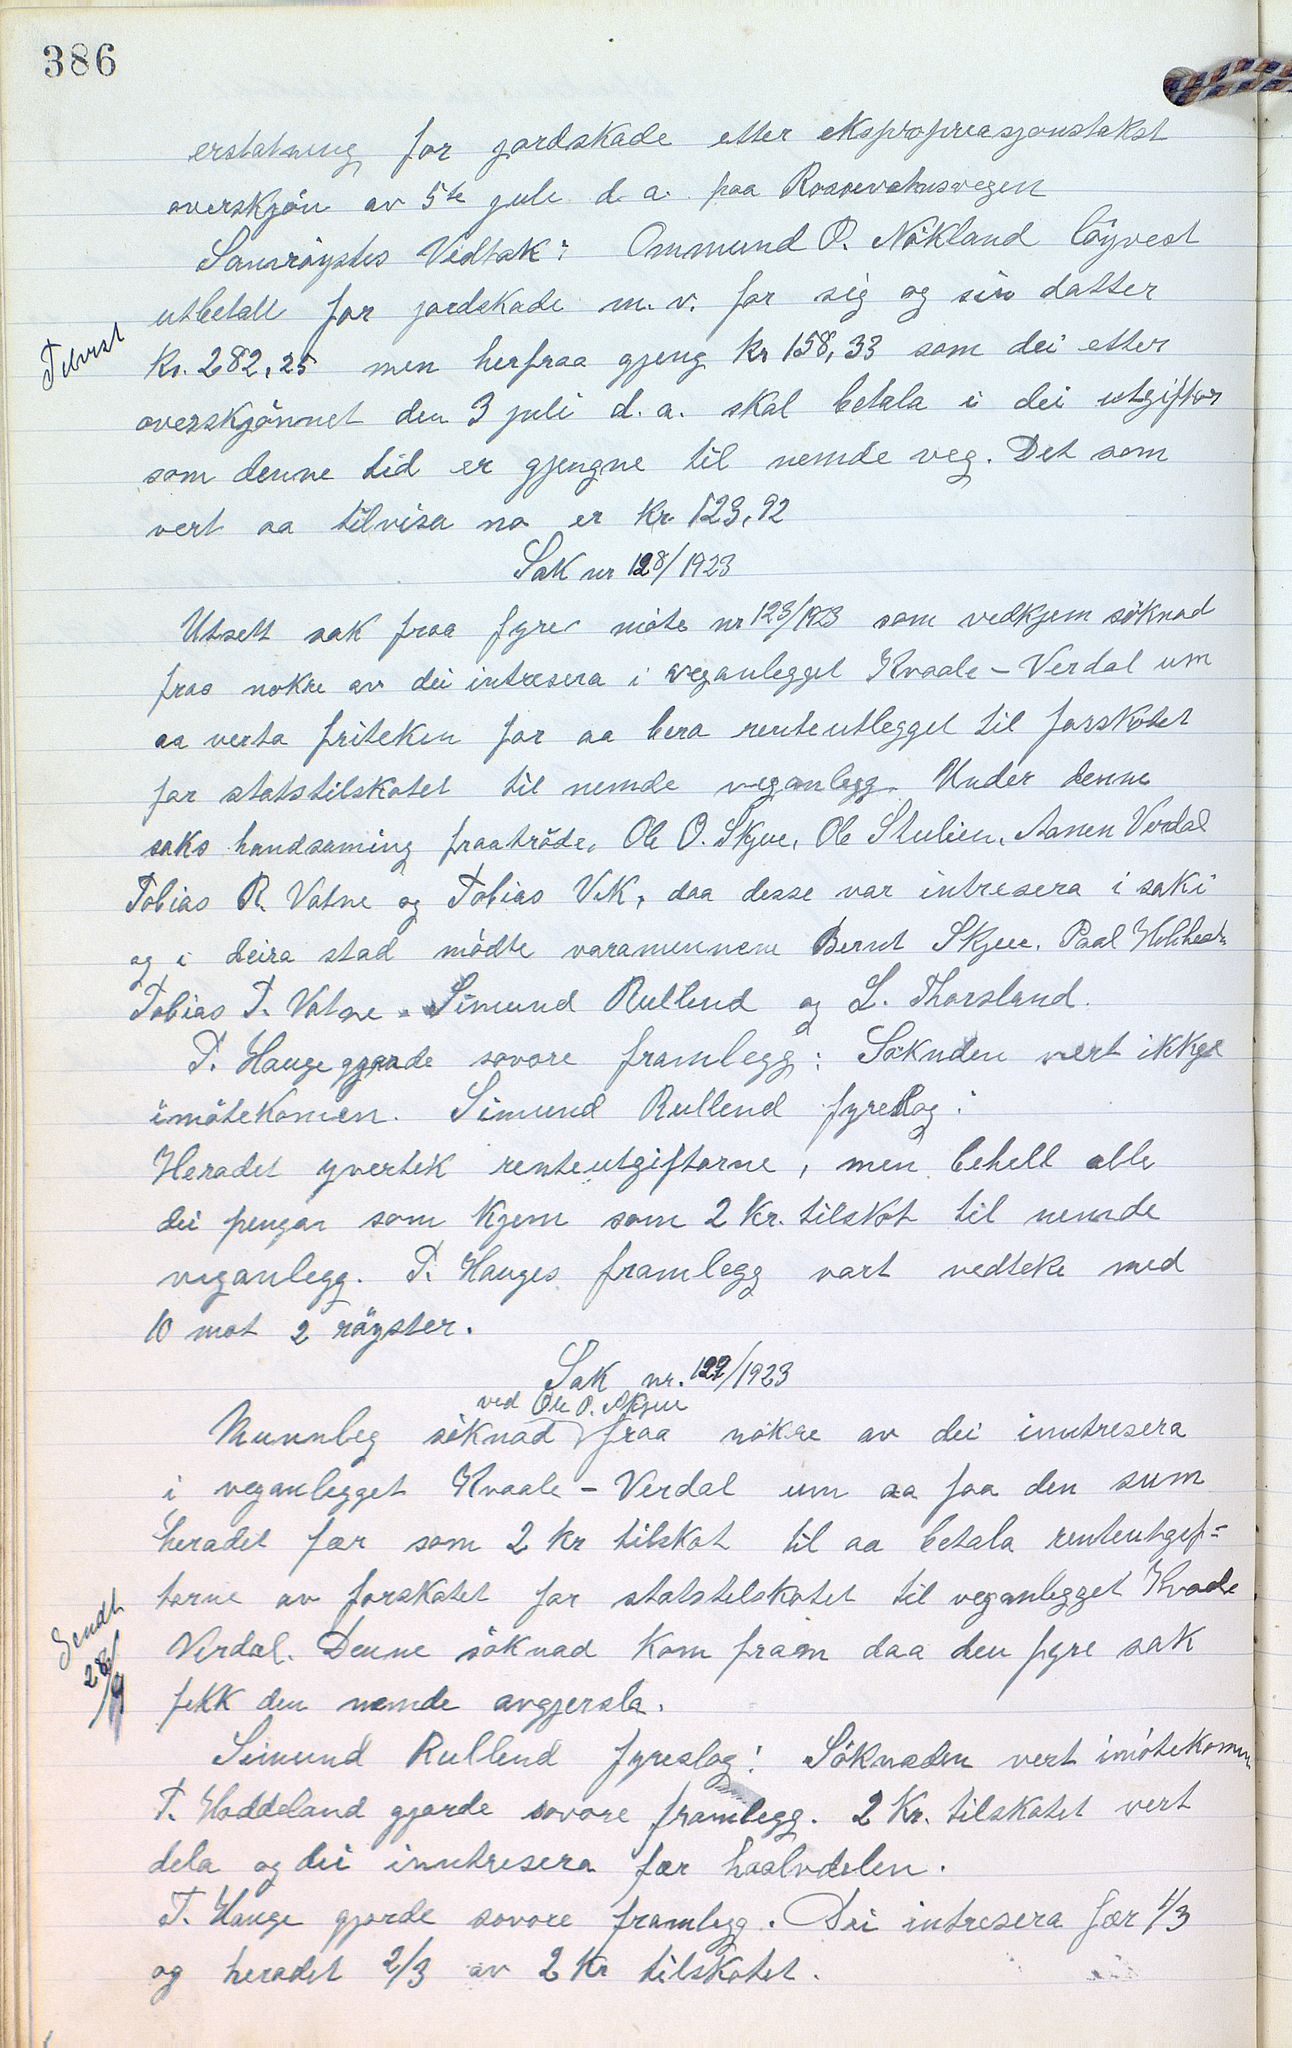 386
erstatning for jordskade etter ekspropriasjonstakst
overskjön av 5te juli d. a. paa Rossevatnsvegen
Samröystes Vedtak: Ommund O. Nökland löyvest
utbetalt for jordskade m. v. for sig og sin datter
Tilvist
kr. 282,25 men herfraa gjeng kr 158,33 som dei etter
overskjönnet den 3 juli d. a. skal betala i dei utgiftor
som denne tid er gjengne til nemde veg. Det som
vert aa tilvisa no er kr 123,92
Sak nr 128/1923
Utsett sak fraa fyre möte nr 123/1923 som vedkjem söknad
fraa nokre av dei intresera i veganlegget Kvaale - Verdal um
aa verta friteken for aa bera renteutlegget til forskotet
for statstilskotet til nemde veganlegg. Under denne
saks handsaming fraatrödde, Ole O. Skjue, Ole Stulien, Aanen Verdal
Tobias R. Vatne og Tobias Vik, daa desse var intresera i saki
og i deira stad mödte varamennene Bernt Skjue, Paal
Tobias T. Vatne, Simund Rullend og L. Thorsland.
T. Hauge gjorde sovore framlegg: Söknden vert ikkje
imötekomen. Simund Rullend fyreslog:
Heradet yvertek renteutgiftorne, men behell alle
dei pengar som kjem som 2 kr. tilskot til nemde
veganlegg. T. Hauges framlegg vart vedteke med
10 mot 2 röyster.
Sak nr. 129/1923
ved Ole O. Skjue
Munnleg söknad fraa nokre av dei inntresera
i veganlegget Kvaale - Verdal um aa faa den sum
heradet fær som 2 kr tilskot til aa betala renteutgif=
torne av forskotet for statstilskotet til veganlegget Kvaale
Sendt
28/9
Verdal. Denne söknad kom fram daa den fyre sak
fekk den nemde avgjersla.
Simund Rullend fyreslog: Söknaden vert imötekomen
T. Hoddeland gjorde sovore framlegg. 2 Kr. tilskotet vert
dela og dei inntresera fær haalvdelen.
T. Hauge gjorde sovore framlegg. Dei intresera fær 1/3
og heradet 2/3 av 2 kr tilskotet.